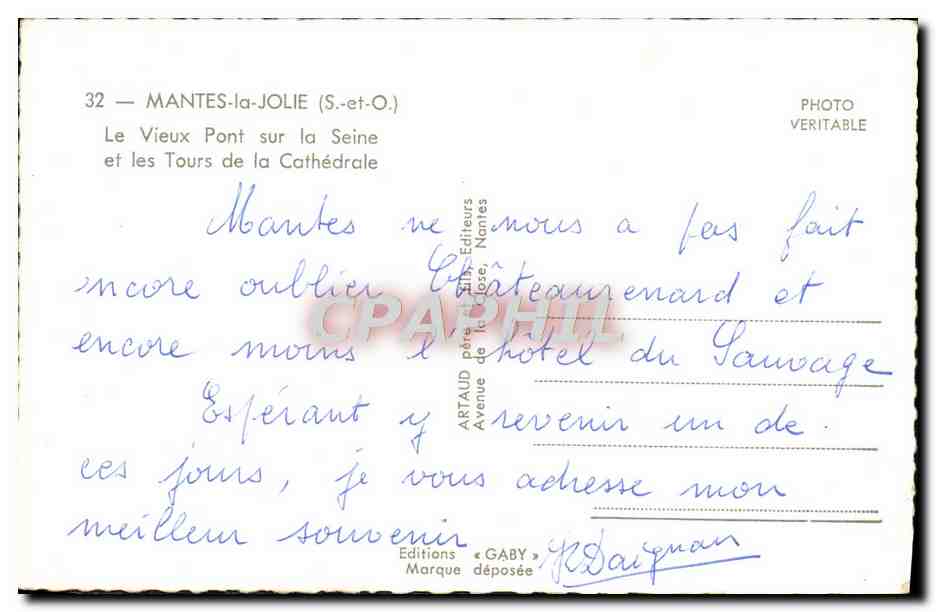 32 — MANTES-la-JOLIE (S.-et-O.)
Le Vieux Pont sur la Seine
et les Tours de la Cathédrale
PHOTO
VERITABLE
Mantes ne nous a pas fait
encore oublier Châteaurenard et
encore moins l'hôtel du Sauvage
Espérant y revenir un de
ces jours, je vous adresse mon
meilleur souvenir
ARTAUD père et fils, Editeurs
Avenue de la Close, Nantes
CPAPHIL
Editions « GABY »
Marque déposée